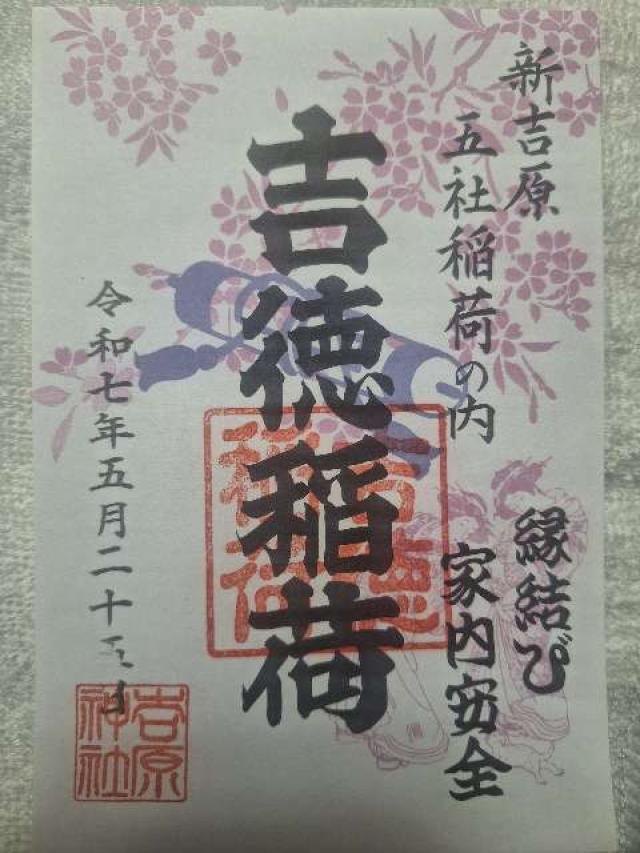 新吉原
五社稲荷の内
縁結び
家内安全
吉徳稲荷
吉徳
稲荷
令和七年五月二十
吉原
神社